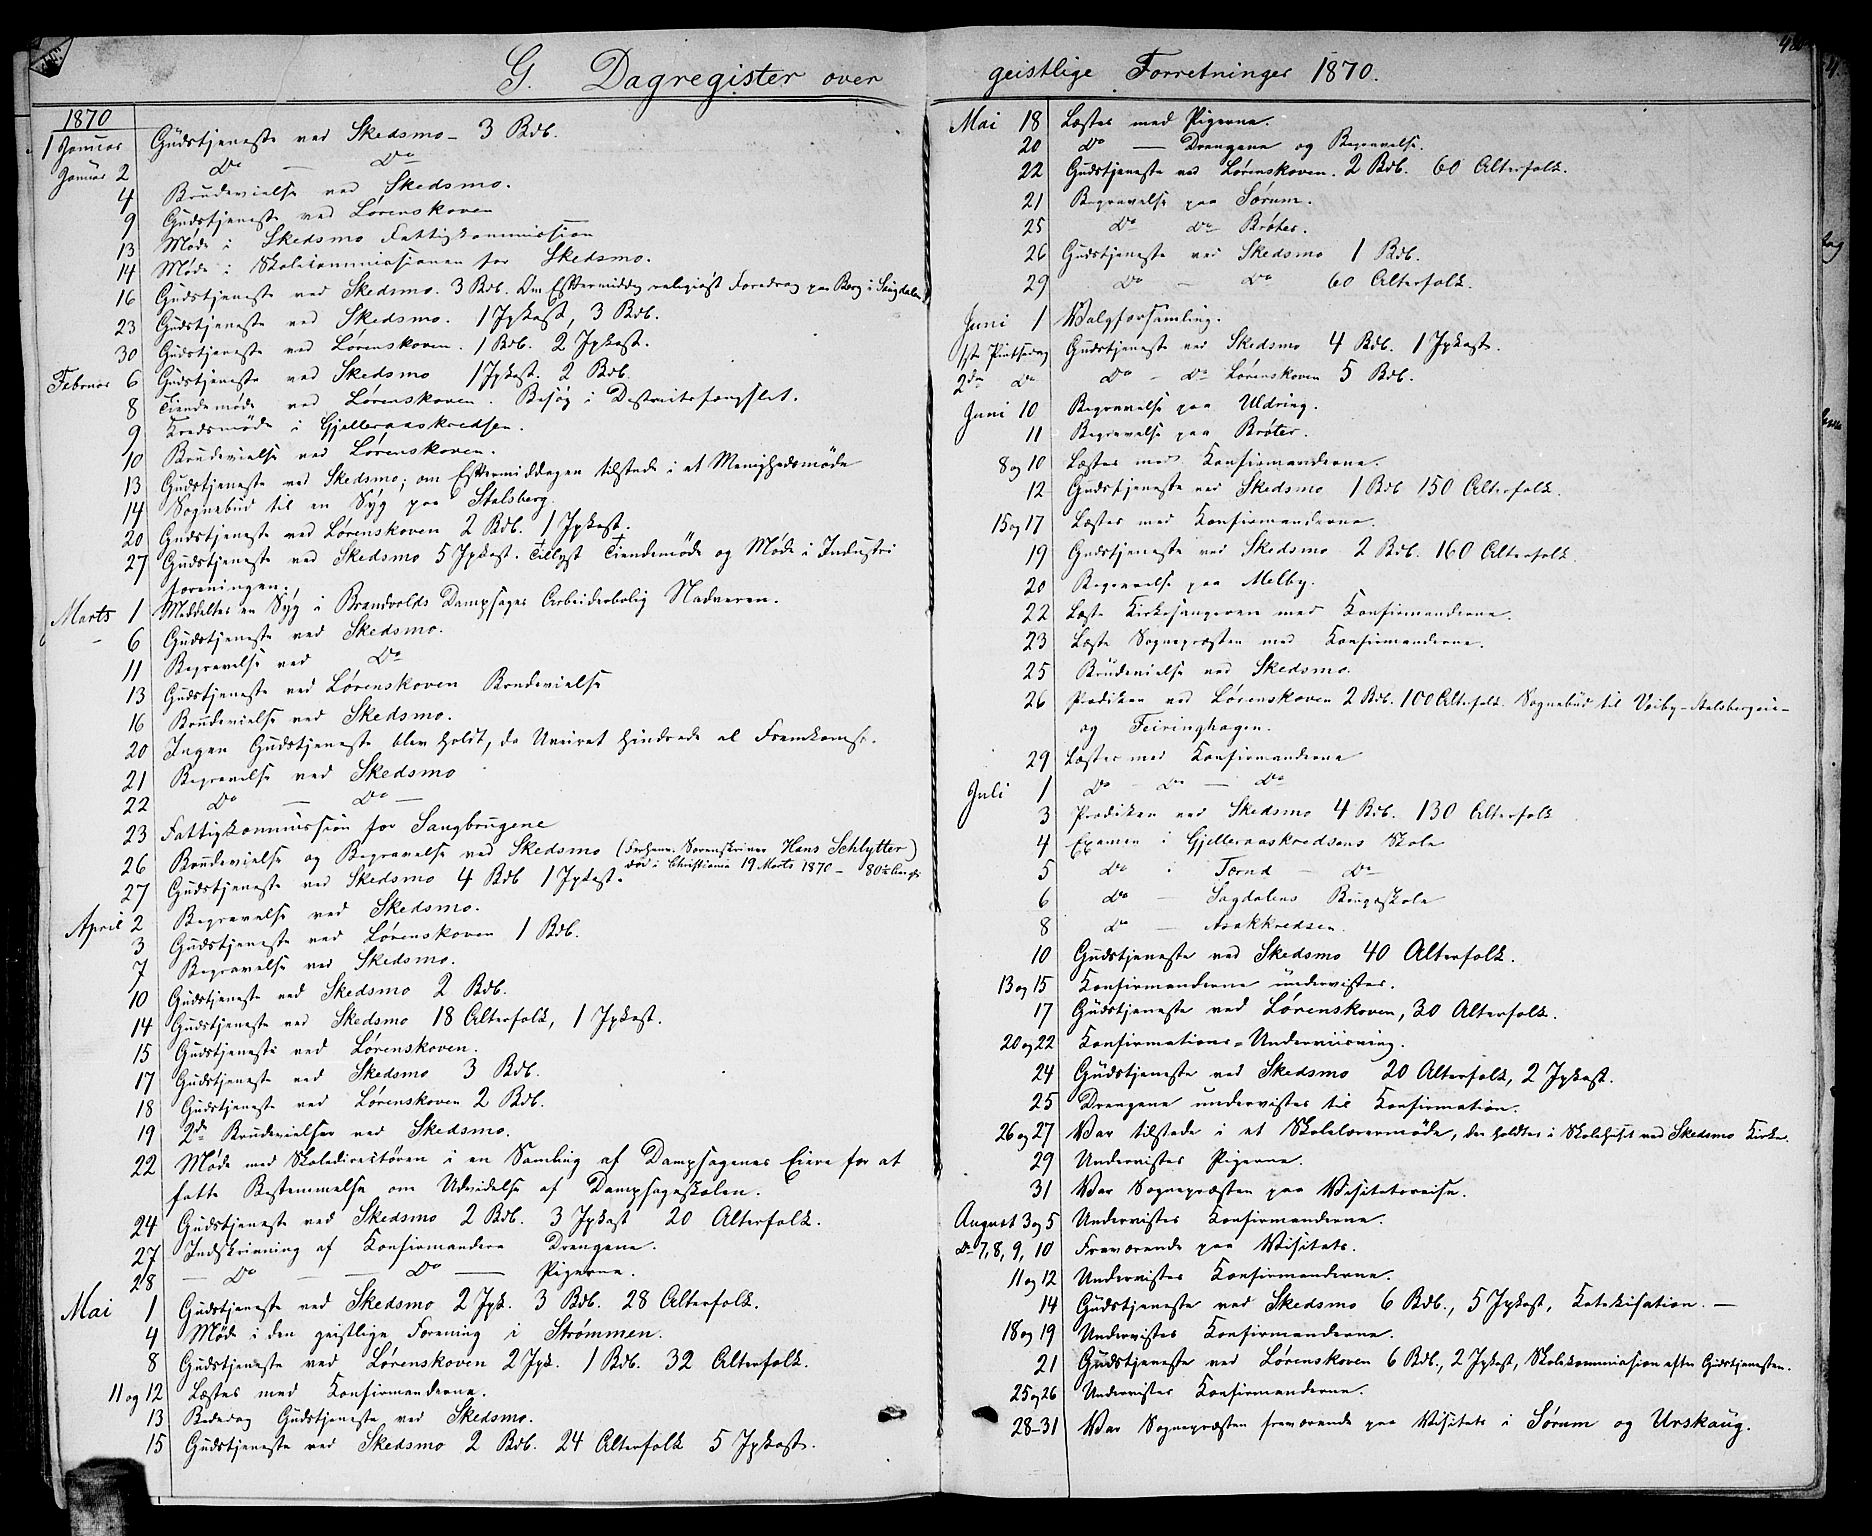 G. Dagregister over geistlige Forretninger 1870.
1870
1 Januar Gudstjeneste ved Skedsmo - 3 Bdb.
Januar 2 Do — Do
4 Brudevielse ved Skedsmo.
9 Gudstjeneste ved Lørenskoven
13 Møde i Skedsmo Fattigkommission
14 Møde i Skolecommissionen for Skedsmo.
16 Gudstjeneste ved Skedsmo. 3 Bdb. Om Eftermiddag religiøst Foredrag paa Berg i Sagdalen
23 Gudstjeneste ved Skedsmo. 1 Jpkast, 3 Bdb.
30 Gudstjeneste ved Lørenskoven. 1 Bdb. 2 Jpkast.
Februar 6 Gudstjeneste ved Skedsmo 1 Jpkast. 2 Bdb.
8 Tiendemøde ved Lørenskoven. Besøg i Destriktsfængslet.
9 Kredsmøde i Gjelleraaskredsen.
10 Brudevielse ved Lørenskoven.
13 Gudstjeneste ved Skedsmo; om Eftermiddagen tilstede i et Menighedsmøde
14 Sognebud til en Syg paa Stalsberg.
20 Gudstjeneste ved Lørenskoven 2 Bdb. 1 Jpkast.
27 Gudstjeneste ved Skedsmo 5 Jpkast. Tillyst Tiendemøde og Møde i Industri
foreningen.
Marts 1 Meddeltes en Syg i Brandvolds Dampsages Arbeiderbolig Nadveren.
- 6 Gudstjeneste ved Skedsmo.
11 Begravelse ved Do
13 Gudstjeneste ved Lørenskoven Brudevielse
16 Brudevielse ved Skedsmo.
20 Ingen Gudstjeneste blev holdt, da Uveiret hindrede al Fremkomst.
21 Begravelse ved Skedsmo
22 Do — Do —
23 Fattigkommission for Saugbrugene
26 Brudevielse og Begravelse ved Skedsmo (Forhenv. Sorenskriver Hans Schlytter)
død i Christiania 19 Marts 1870 - 80
27 Gudstjeneste ved Skedsmo 4 Bdb 1 Jpkast.
April 2 Begravelse ved Skedsmo.
3 Gudstjeneste ved Lørenskoven 1 Bdb.
7 Begravelse ved Skedsmo.
10 Gudstjeneste ved Skedsmo 2 Bdb.
14 Gudstjeneste ved Skedsmo 18 Alterfolk, 1 Jpkast.
15 Gudstjeneste ved Lørenskoven.
17 Gudstjeneste ved Skedsmo 3 Bdb.
18 Gudstjeneste ved Lørenskoven 2 Bdb.
19 2de Brudevielser ved Skedsmo.
22 Møde med Skoledirektøren i en Samling af Dampsagenes Eiere for at
fatte Bestemmelse om Udvidelse af Dampsageskolen.
24 Gudstjeneste ved Skedsmo 2 Bdb. 3 Jpkast 20 Alterfolk.
27 Indskrivning af Konfirmandere Drengene.
28 — Do — Do — Pigerne.
Mai 1 Gudstjeneste ved Skedsmo 2 Jpk. 3 Bdb. 28 Alterfolk.
4 Møde i den geistlige Forening i Strømmen.
8 Gudstjeneste ved Lørenskoven 2 Jpk. 1 Bdb. 32 Alterfolk.
11 og 12 Læstes med Konfirmanderne.
13 Bededag Gudstjeneste ved Skedsmo.
15 Gudstjeneste ved Skedsmo 2 Bdb. 24 Alterfolk 5 Jpkast.
Mai 18 Læstes med Pigerne.
20 Do — Drengene og Begravelse.
22 Gudstjeneste ved Lørenskoven. 2 Bdb. 60 Alterfolk.
21 Begravelse paa Sørum.
25 Do Do Brøter.
26 Gudstjeneste ved Skedsmo 1 Bdb.
29 Do - Do 60 Alterfolk.
Juni 1 Valgforsamling.
1ste Pintsedag Gudstjeneste ved Skedsmo 4 Bdb. 1 Jpkast.
2den Do Do - Do Lørenskoven 5 Bdb.
Juni 10 Begravelse paa Uldring.
11 Begravelse paa Brøter.
8 og 10 Læstes med Konfirmanderne.
12 Gudstjeneste ved Skedsmo 1 Bdb 150 Alterfolk.
15 og 17 Læstes med Konfirmanderne.
19 Gudstjeneste ved Skedsmo 2 Bdb. 160 Alterfolk.
20 Begravelse paa Melby.
22 Læste Kirkesangeren med Konfirmanderne.
23 Læste Sognepræsten med Konfirmanderne.
25 Brudevielse ved Skedsmo.
26 Prædiken ved Lørenskoven 2 Bdb. 100 Alterfolk. Sognebud til Veiby-Stalsbergeie-
og Feiringhagen.
29 Læstes med Konfirmanderne
Juli 1 Do - Do — Do
3 Prædiken ved Skedsmo 4 Bdb. 130 Alterfolk
4 Examen i Gjelleraaskredsens Skole
5 Do i Tærud — Do
6 Do — Sagdalens Brugsskole
8 Do — Asakkredsen.
10 Gudstjeneste ved Skedsmo 40 Alterfolk.
13 og 15 Konfirmanderne undervistes.
17 Gudstjeneste ved Lørenskoven, 30 Alterfolk.
20 og 22 Konfirmations-Underviisning.
24 Gudstjeneste ved Skedsmo 20 Alterfolk, 2 Jpkast.
25 Drengene undervistes til Konfirmation.
26 og 27 Var tilstede i et Skolelærermøde, der holdtes i Skolehuset ved Skedsmo Kirke.
29 Undervistes Pigerne.
31 Var Sognepræsten paa Visitatsreise.
August 3 og 5 Undervistes Konfirmanderne.
Do 7, 8, 9, 10 Fraværende paa Visitats.
11 og 12 Undervistes Konfirmanderne.
14 Gudstjeneste ved Skedsmo 6 Bdb., 5 Jpkast, Katekisation. —
18 og 19 Undervistes Konfirmanderne.
21 Gudstjeneste ved Lørenskoven 6 Bdb., 2 Jpkast, Skolekommission efter Gudstjenesten.
25 og 26 Undervistes Konfirmanderne.
28-31 Var Sognepræsten fraværende paa Visitats i Sørum og Urskaug.